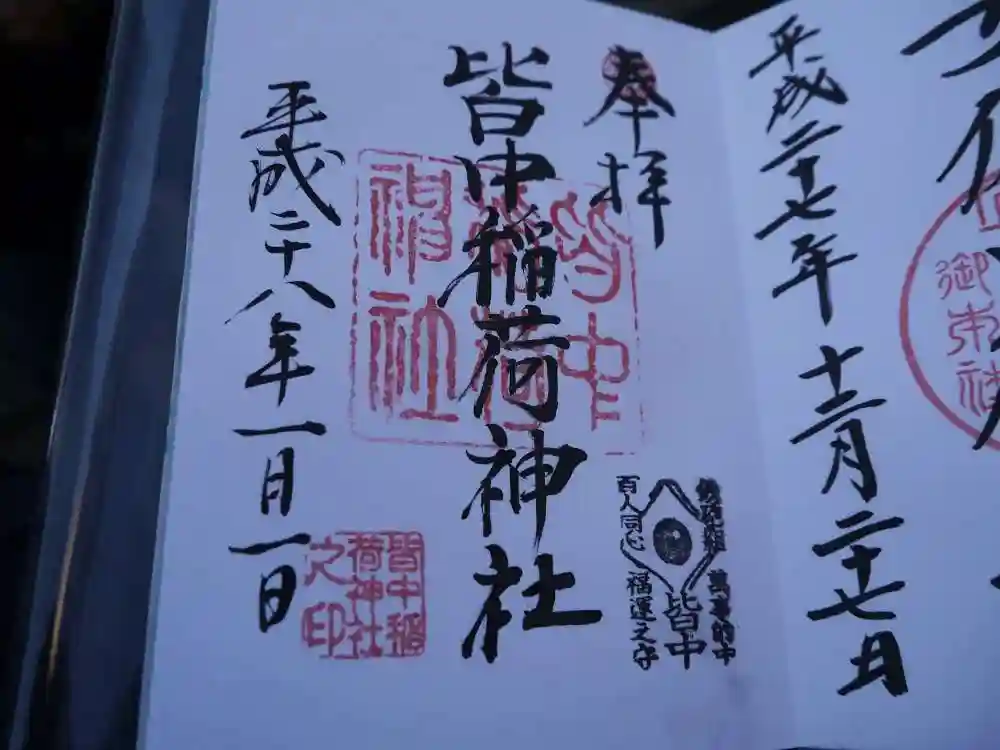 平成二十七年十二月二十七日
奉拝
皆中稲荷神社
平成二十八年一月一日
皆中
稲荷
神社
皆中稲
荷神社
之印
百人同心
福運之守
萬事的中
皆中
御朱